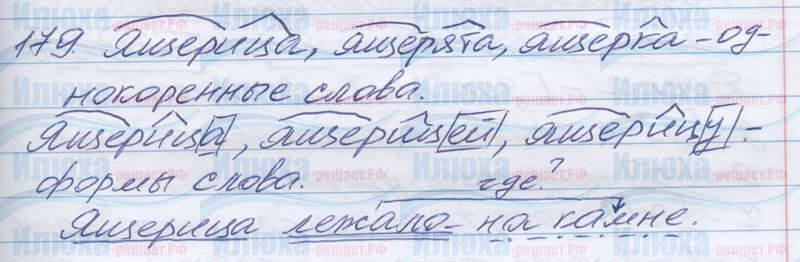 179. Ящерица, ящерята, ящерка - од-
нокоренные слова.
Ящерица, ящерицей, ящерицу -
формы слова. где?
Ящерица лежала на камне.